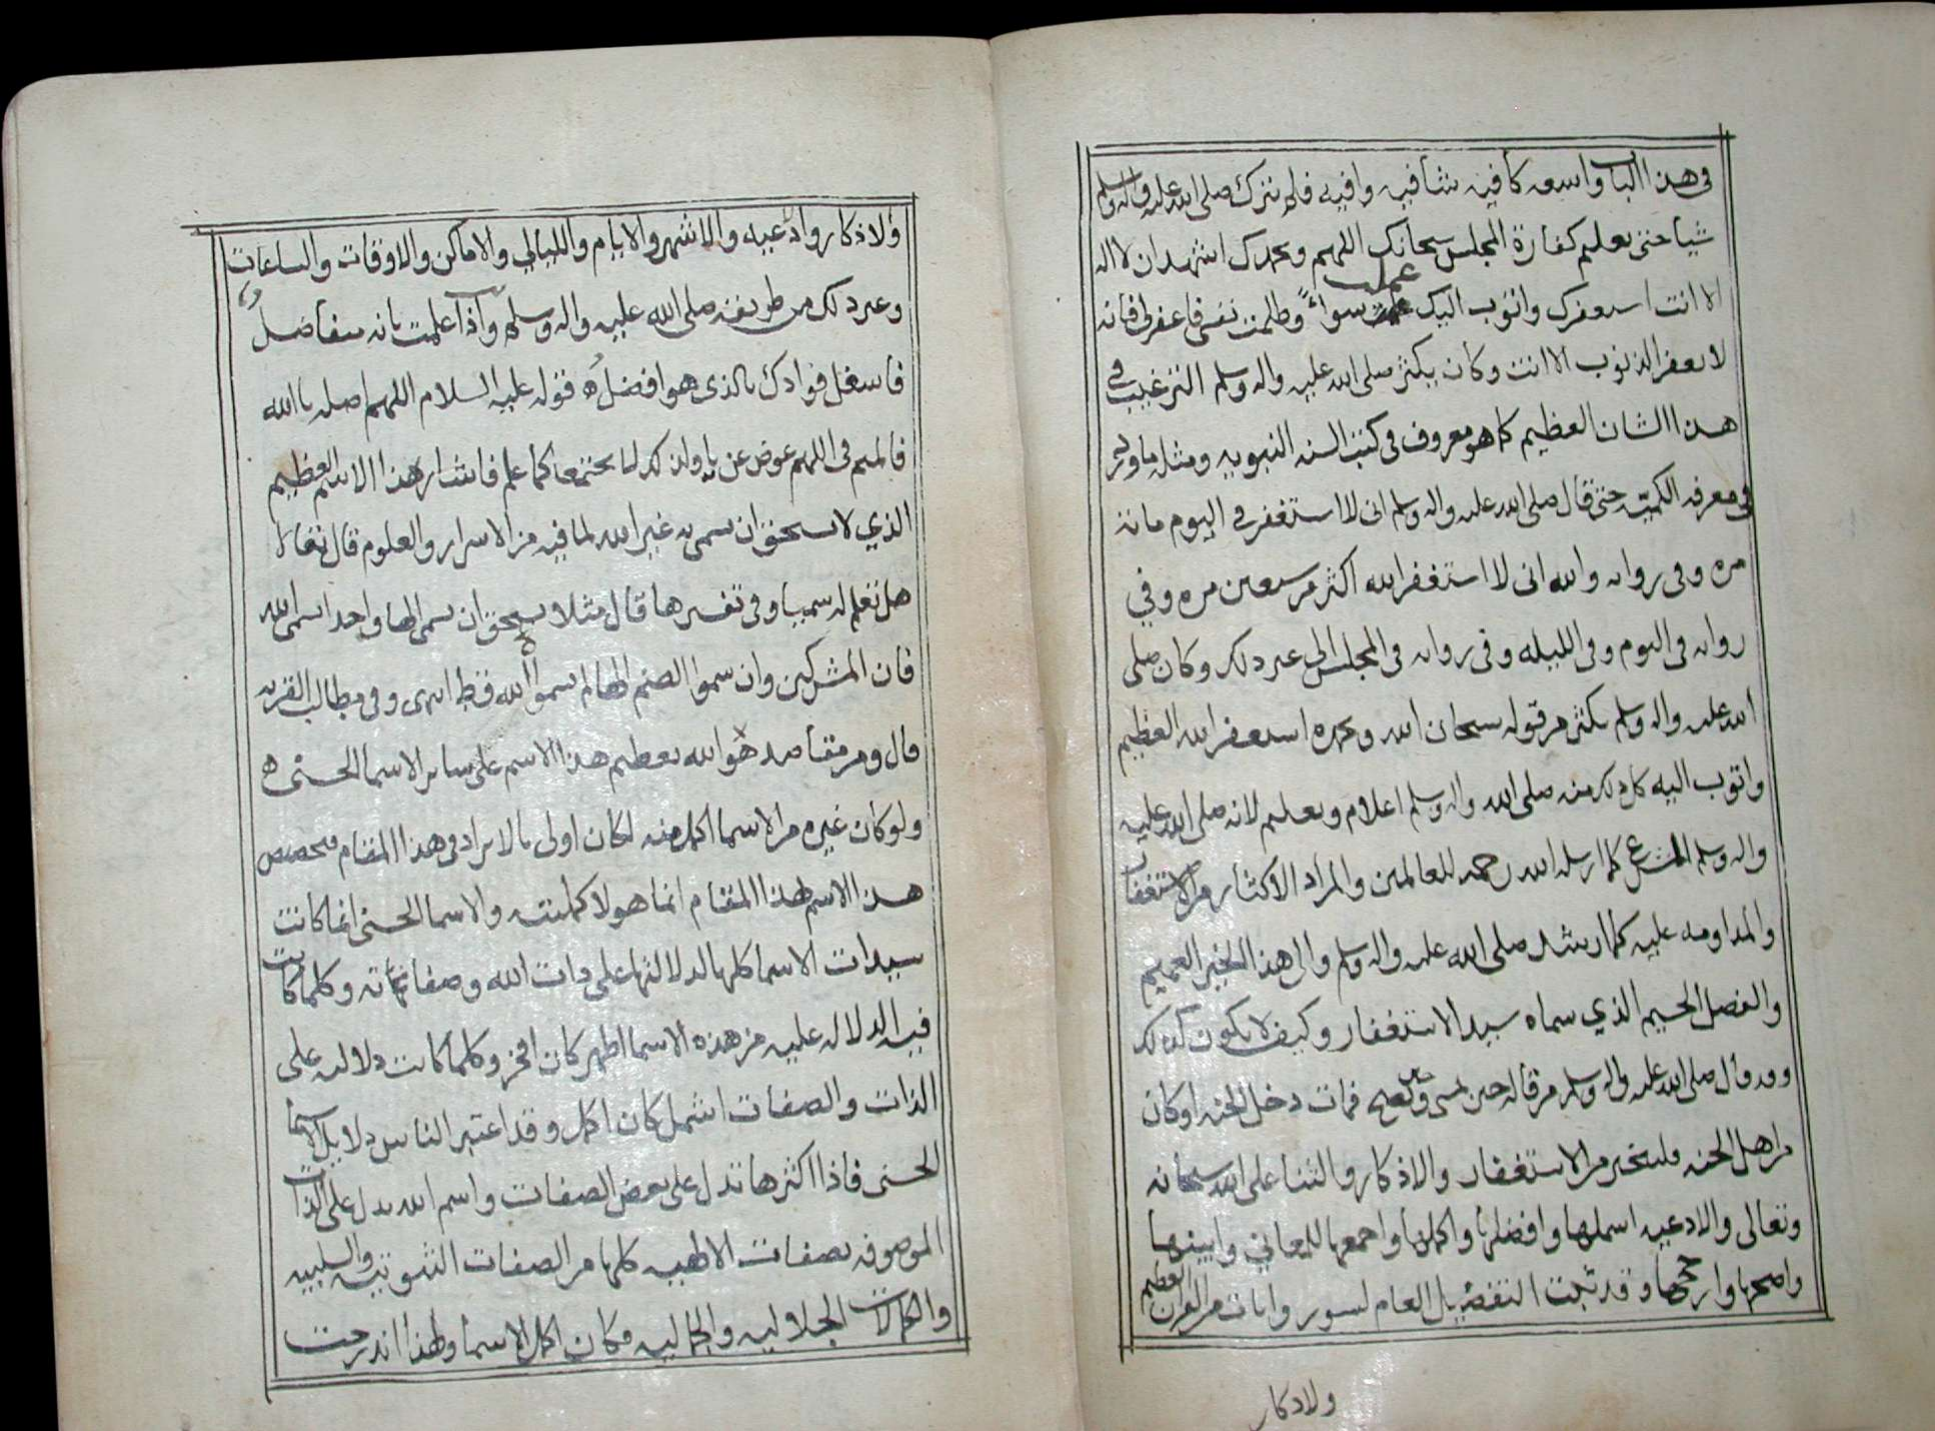 في هذا الباب واسعه كافيه شافيه وافيه فلم يترك صلى الله عليه واله وسلم
شيا حتى تعليم كفارة المجلس سبحانك اللهم وبحمدك اشهد ان لا اله
الا انت استغفرك واتوب اليك عملت سواءً وظلمت نفسي فاغفرلي فانه
لا يغفر الذنوب الا انت وكان يكثر صلى الله عليه واله وسلم الترغيب في
هذا الشان العظيم كما هو معروف في كتب السنه النبويه ومثله ما ورد
في معرفه الكميّه حتى قال صلى الله عليه واله وسلم اني لا استغفر في اليوم مائة
مره وفي روايه والله اني لا استغفر الله اكثر من سبعين مره وفي
روايه في اليوم وفي الليله وفي روايه في المجلس الى غير ذلك وكان صلى
الله عليه واله وسلم يكثر من قوله سبحان الله وبحمده استغفر الله العظيم
واتوب اليه كل ذلك منه صلى الله واله وسلم اعلام وتعليم لانه صلى الله عليه
واله وسلم المشرع كما ارسله الله رحمه للعالمين والمراد الاكثار من الاستغفار
والمداومه عليه كما ارشد صلى الله عليه واله وسلم والى هذا الخير العميم
والفضل الجسيم الذي سماه سيد الاستغفار وكيف لا يكون كذلك
وقد قال صلى الله عليه واله وسلم من قاله حين يمسي وحين يصبح فمات دخل الجنه او كان
من اهل الجنه فليتخير من الاستغفار والاذكار والثنا على الله سبحانه
وتعالى والادعيه اشملها وافضلها واكملها واجمعها للمعاني وابينها
واصحها وارجحها وقد ثبت التفضيل العام لسور وايات من القران العظيم
ولاذكار
ولاذكار وادعيه والاشهر والايام والليالي والاماكن والاوقات والساعات
وغير ذلك من طريقته صلى الله عليه واله وسلم واذا علمت بانه متفاضلُ
فاشغل فوادك بالذي هو افضلُ قوله عليه السلام اللهم اصله يا الله
فالميم في اللهم عوض عن يا ولذلك لا يجتمعا كما علم فاشار هذا الاسم العظيم
الذي لا يستحق ان يسمى به غير الله لما فيه من الاسرار والعلوم قال تعالى
هل تعلم له سميا وفي تفسيرها قال مثلا يستحق ان يسمى الها واحدا يسمى الله
فان المشركين وان سموا الصنم الها لم يسموا الله قط انتهى وفي مطالب القريه
قال ومن مقاصد هو الله تعظيم هذا الاسم على ساير الاسما الحسنى
ولو كان غيره من الاسما اكمل منه لكان اولى بالايراد في هذا المقام فتخصيص
هذا الاسم لهذا المقام انما هو لاكمليته والاسما الحسنى انما كانت
سيدات الاسما كلها لدلالتها على ذات الله وصفاته وكلما كانت
فيه الدلاله عليه من هذه الاسما اظهر كان افخر وكلما كانت دلالته على
الذات والصفات اشمل كان اكمل وقد اعتبر الناس دلايل الاسما
الحسنى فاذا اكثرها تدل على بعض الصفات واسم الله يدل على الذات
الموصوفه بصفات الالهيه كلها من الصفات الثبوتيه والسلبيه
والكمالات الجلاليه والجماليه فكان اكمل الاسما ولهذا اندرجت